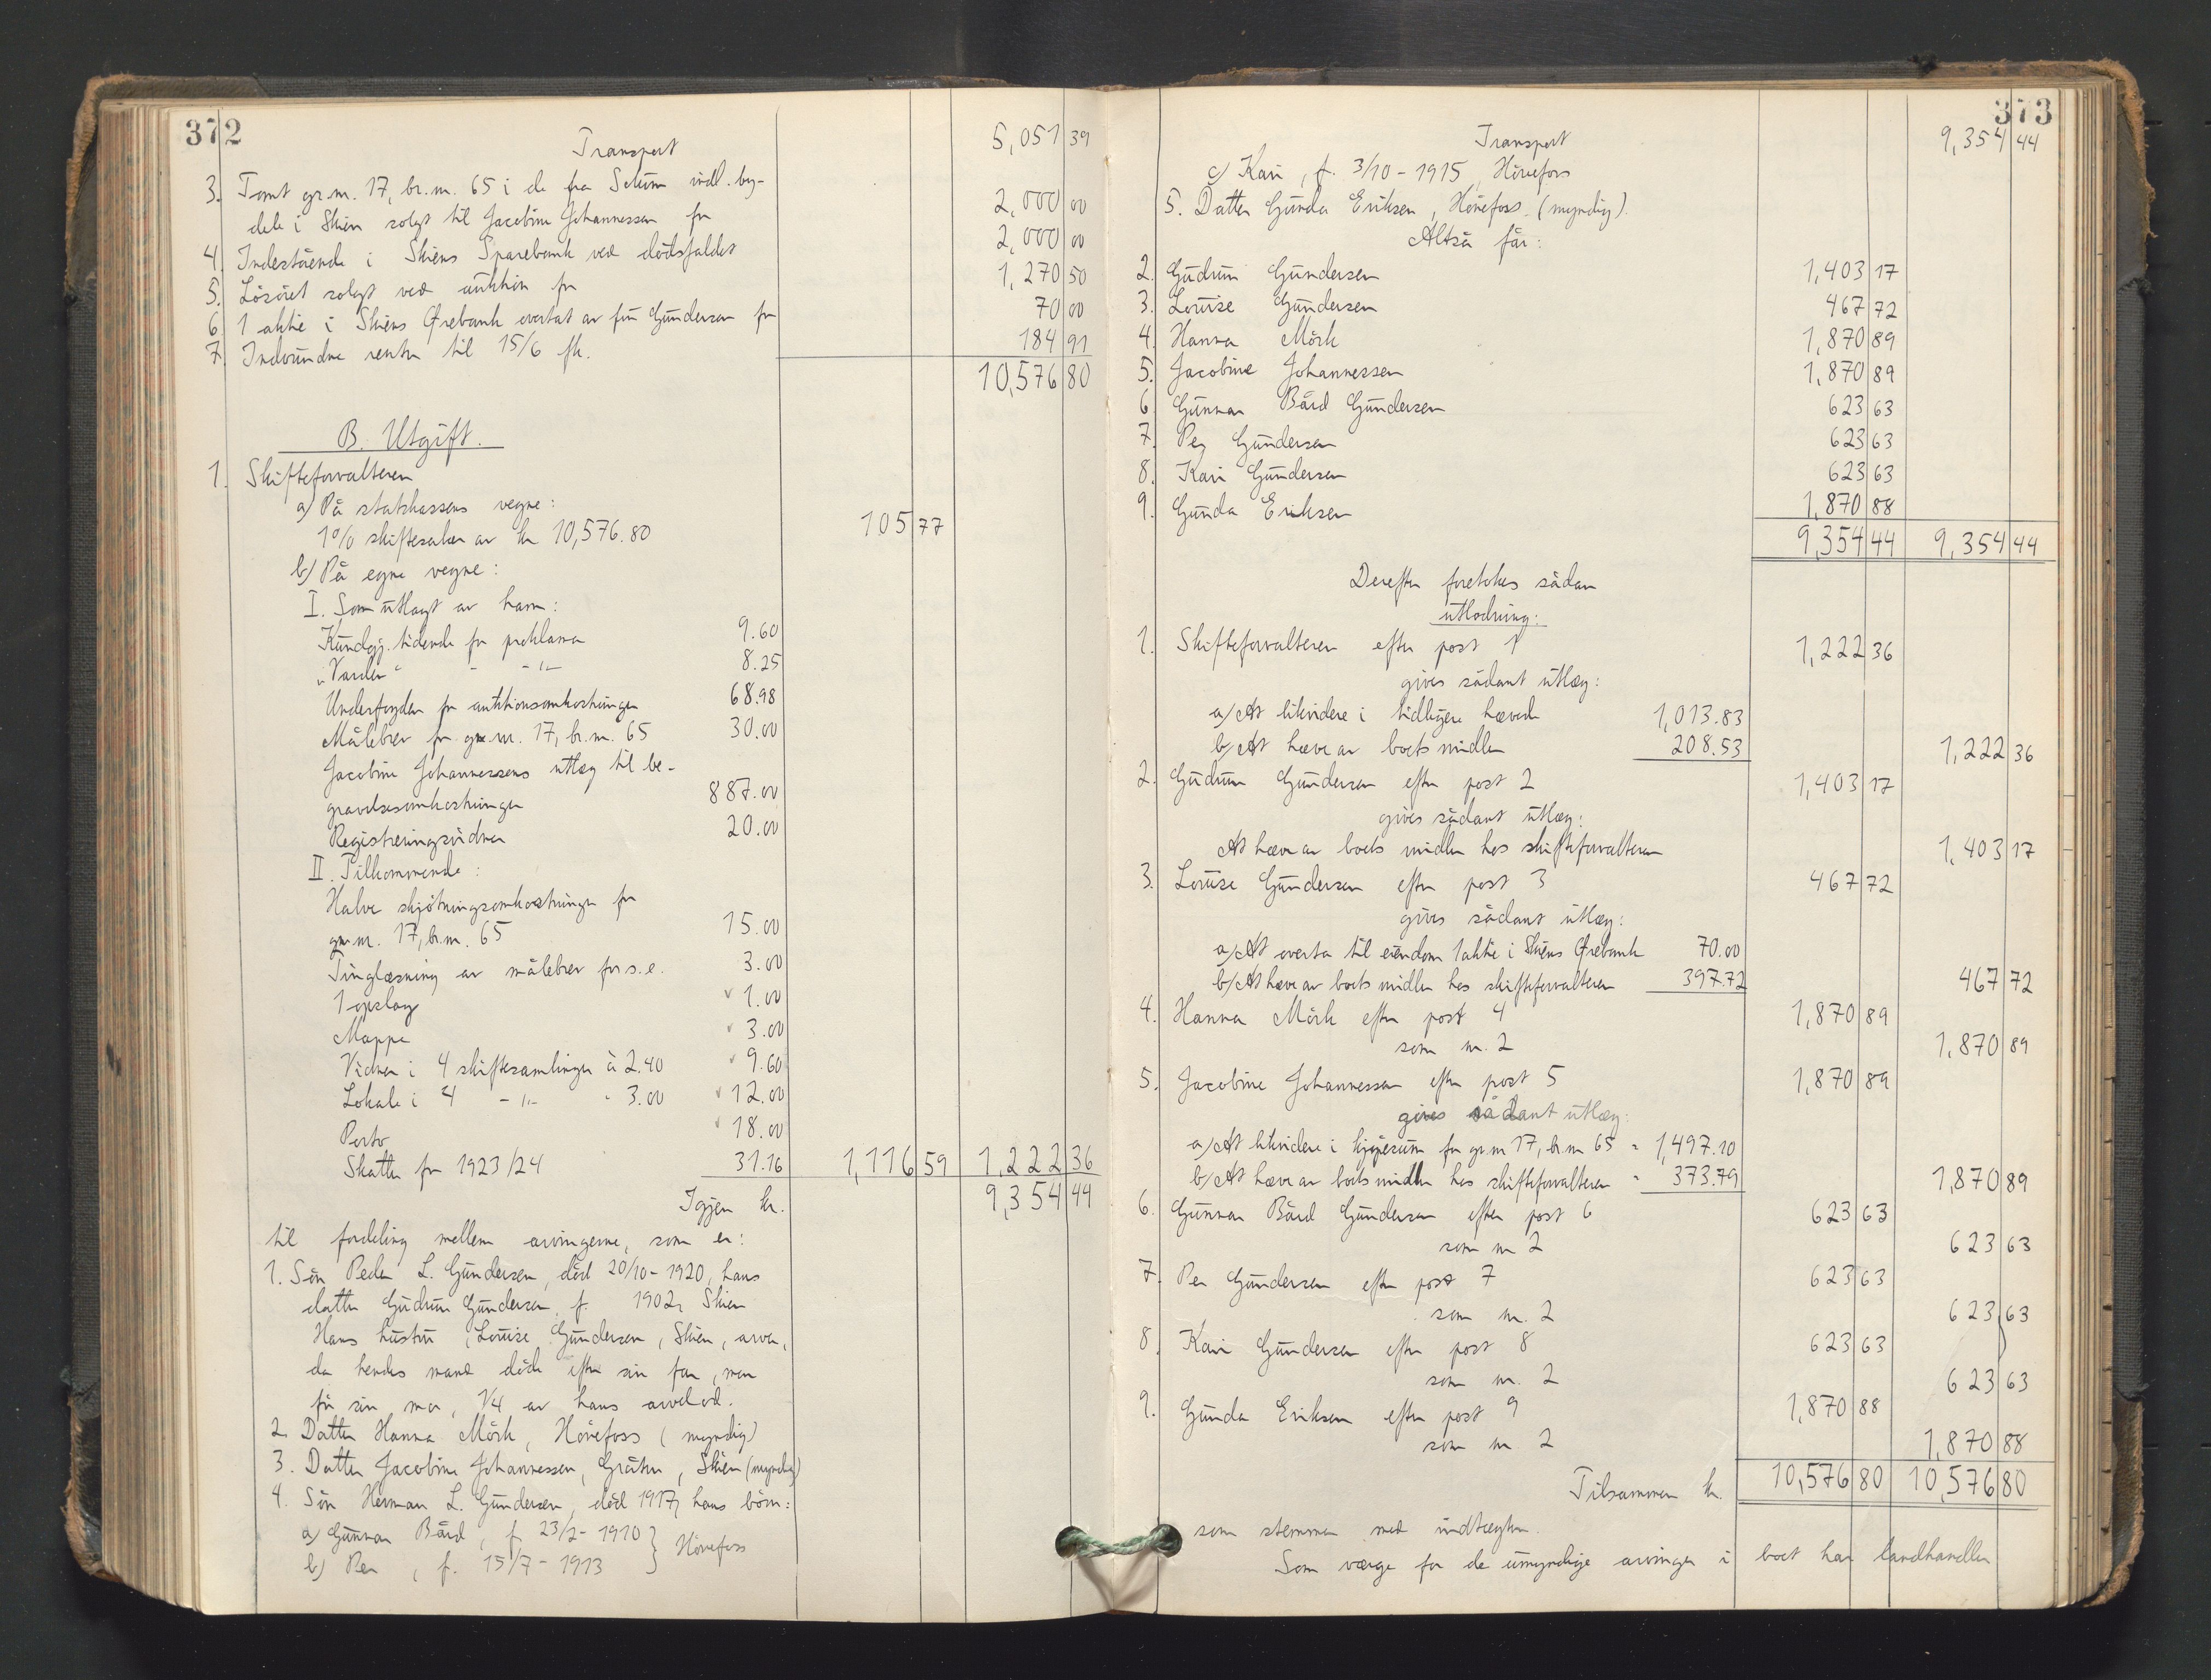 372
Transport 5,051 39
3. Tomt gr.nr. 17, br.nr. 65 i de fra Solum indl. by-
dele i Skien solgt til Jacobine Johannessen for 2,000 00
4. Indestående i Skiens Sparebank ved dödsfaldet 2,000 00
5. Lösöret solgt ved auktion for 1,270 50
6. 1 aktie i Skiens Ørebank overtat av fru Gundersen for 70 00
7. Indvundne renter til 15/6 ff. 184 91
10,576 80
B. Utgift.
1. Skifteforvalteren
a) På statskassens vegne:
1% skiftesalær av kr 10,576.80 105 77
b) På egne vegne:
I. Som utlagt av ham:
Kundgj. tidende for proklama 9.60
"Varden" - -"- 8.25
Underfogden for auktionsomkostninger 68.98
Målebrev for gr.nr. 17, br.nr. 65 30.00
Jacobine Johannessens utlæg til be-
gravelsesomkostninger 887.00
Registreringsvidner 20.00
II. Tilkommende:
Halve skjötningsomkostninger for
gr.nr. 17, br.nr. 65 15.00
Tinglæsning av målebrev for s.e. 3.00
1 opslag 1.00
Mappe 3.00
Vidner i 4 skiftesamlinger à 2.40 9.60
Lokale i 4 -"- - 3.00 12.00
Porto 18.00
Skatter for 1923/24 31.16 1,116 59 1,222 36
Igjen kr. 9,354 44
til fordeling mellem arvingerne, som er:
1. Sön Peder L. Gundersen, död 20/10-1920, hans
datter Gudrun Gundersen, f. 1902, Skien
Hans hustru, Louise Gundersen, Skien, arver,
da hendes mand döde efter sin far, men
för sin mor, 1/4 av hans arvelod.
2. Datter Hanna Mörk, Hönefoss (myndig)
3. Datter Jacobine Johannessen, Gråten, Skien (myndig)
4. Sön Herman L. Gundersen, död 1917, hans börn:
a) Gunnar Bård, f. 23/2-1910 } Hönefoss
b) Per, f. 15/7-1913
373
Transport 9,354 44
c) Kari, f. 3/10-1915, Hönefoss
5. Datter Gunda Eriksen, Hönefoss (myndig).
Altså får:
2. Gudrun Gundersen 1,403 17
3. Louise Gundersen 467 72
4. Hanna Mörk 1,870 89
5. Jacobine Johannessen 1,870 89
6. Gunnar Bård Gundersen 623 63
7. Per Gundersen 623 63
8. Kari Gundersen 623 63
9. Gunda Eriksen 1,870 88
9,354 44 9,354 44
Derefter foretokes sådan
utlodning:
1. Skifteforvalteren efter post 1 1,222 36
gives sådant utlæg:
a) At likvidere i tidligere hævede 1,013.83
b) At hæve av boets midler 208.53 1,222 36
2. Gudrun Gundersen efter post 2 1,403 17
gives sådant utlæg:
At hæve av boets midler hos skifteforvalteren 1,403 17
3. Louise Gundersen efter post 3 467 72
gives sådant utlæg:
a) At overta til eiendom 1 aktie i Skiens Ørebank 70.00
b) At hæve av boets midler hos skifteforvalteren 397.72 467 72
4. Hanna Mörk efter post 4 1,870 89
som nr. 2 1,870 89
5. Jacobine Johannessen efter post 5 1,870 89
gives sådant utlæg:
a) At likvidere i kjöpesum for gr.nr 17, br.nr 65 - 1,497.10
b) At hæve av boets midler hos skifteforvalteren - 373.79 1,870 89
6. Gunnar Bård Gundersen efter post 6 623 63
som nr 2 623 63
7. Per Gundersen efter post 7 623 63
som nr. 2 623 63
8. Kari Gundersen efter post 8 623 63
som nr. 2 623 63
9. Gunda Eriksen efter post 9 1,870 88
som nr 2 1,870 88
Tilsammen kr. 10,576 80 10,576 80
som stemmer med indtægten.
Som værge for de umyndige arvinger i boet har landhandler